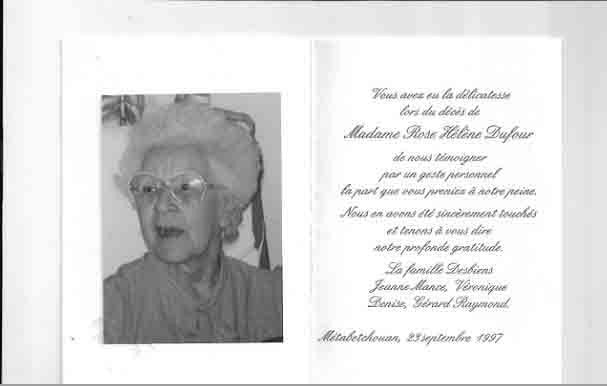 Vous avez eu la délicatesse
lors du décès de
Madame Rose Hélène Dufour
de nous témoigner
par un geste personnel
la part que vous preniez à notre peine.
Nous en avons été sincèrement touchés
et tenons à vous dire
notre profonde gratitude.
La famille Desbiens
Jeanne Mance, Véronique
Denise, Gérard Raymond.
Métabetchouan, 23 septembre 1997